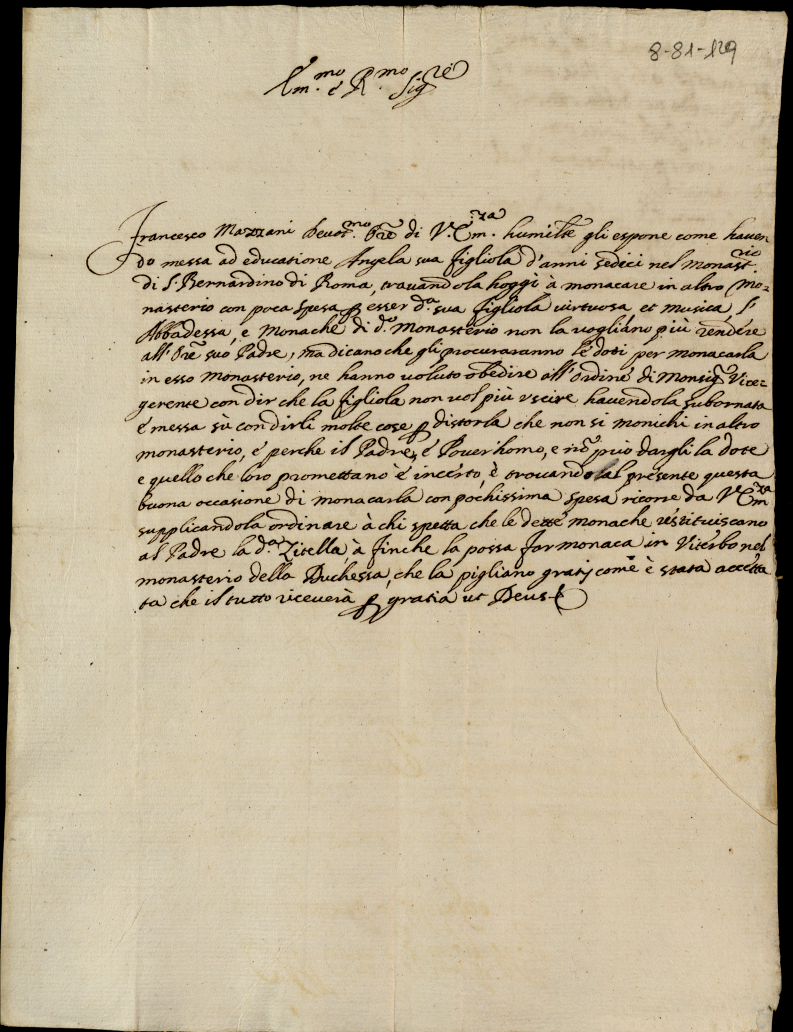 8-81-129
Em.mo e R.mo Sig.re
Francesco Mazzani devot.mo Ore di V. Em.za humilte gli espone come haven
do messa ad educatione Angela sua figliola d'anni sedici nel Monast.rio
di S. Bernardino di Roma, trovandola hoggi à monacare in altro Mo=
nasterio con poca spesa p esser d.a sua figliola virtuosa, et musica, l'
Abbadessa, e Monache di d.o Monasterio non la vogliano più rendere
all'Ore suo Padre, ma dicano che gli procuraranno le doti per monacarla
in esso Monasterio, ne hanno voluto obedire all'ordine di Monsig.r Vice=
gerente con dir che la figliola non vol più uscire havendola subornata
e messa sù con dirli molte cose p distorla che non si monichi in altro
monasterio, e perche il Padre, è Pover'homo, e nõ può dargli la dote
e quello che loro promettano è incerto, è trovando al presente questa
buona occasione di monacarla con pochissima spesa ricorre da V. Em.za
supplicandola ordinare à chi spetta che le dette monache restituiscano
al Padre la d.a Zitella, à finche la possa far monaca in Viterbo nel
monasterio della Duchessa, che la pigliano gratis come è stata accetta
ta che il tutto riceverà p gratia ut Deus